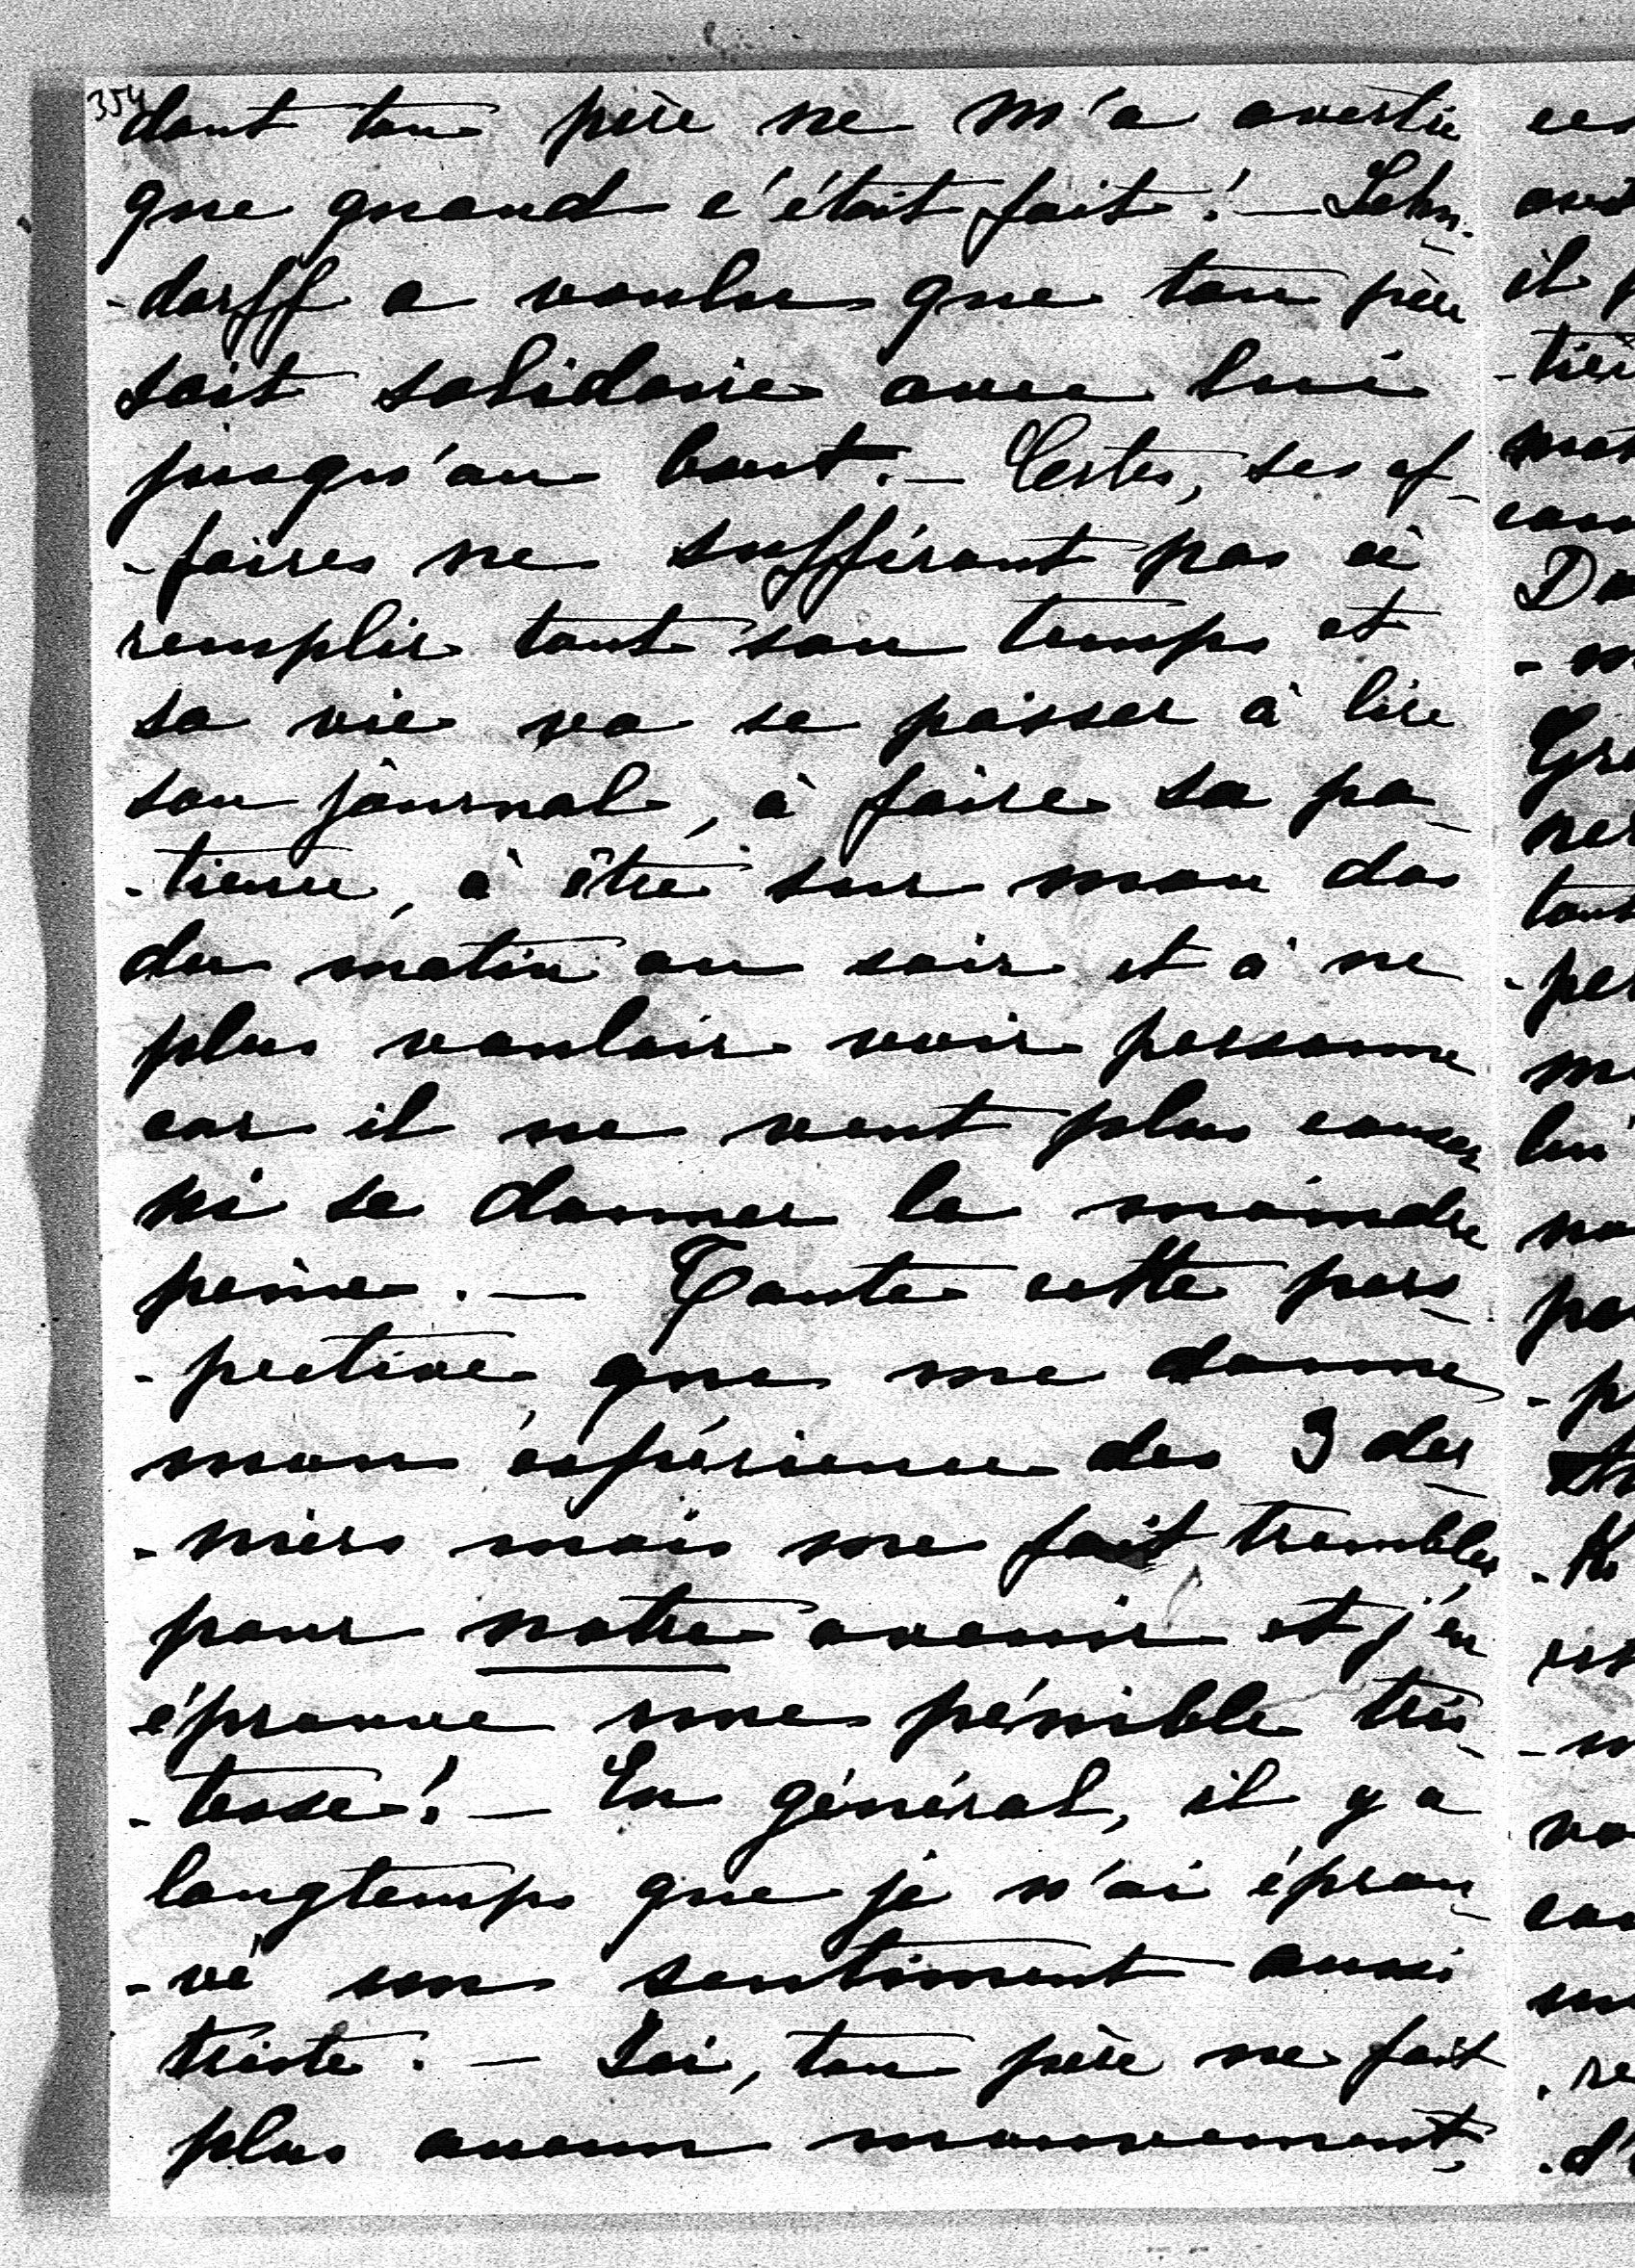 354
dont ton père ne m'a avertie
que quand c'était fait! — Lehn-
-dorff a voulu que ton père
soit solidaire avec lui
jusqu'au bout. — Certes, ses af-
-faires ne sufféront pas à
remplir tout son temps et
sa vie va se passer à lire
son journal, à faire sa pa-
-tience, à être sur mon dos
du matin au soir et à ne
plus vouloir voir personne
car il ne veut plus causer
ni se donner la moindre
peine. — Toute cette pers-
-pective, que me donne
mon expérience des 3 der-
-niers mois me fait trembler
pour notre avenir et j'en
éprouve une pénible tris-
-tesse! — En général, il y a
longtemps que je n'ai éprou-
-vé un sentiment aussi
triste. — Ici, ton père ne fait
plus aucun mouvement,